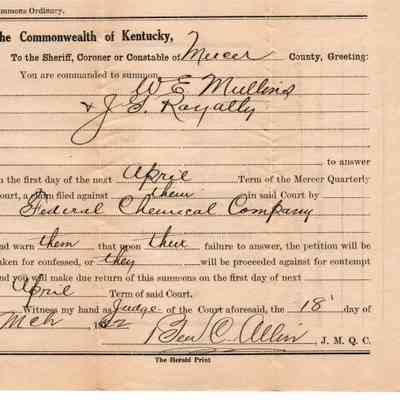 ummons Ordinary.
he Commonwealth of Kentucky,
To the Sheriff, Coroner or Constable of Mercer County, Greeting:
You are commanded to summon W E Mullins
& J S Royalty
to answer
n the first day of the next April Term of the Mercer Quarterly
ourt, a filed against them in said Court by
Federal Chemical Company
nd warn them that upon their failure to answer, the petition will be
aken for confessed, or they will be proceeded against for contempt
nd you will make due return of this summons on the first day of next
April Term of said Court.
Witness my hand as Judge of the Court aforesaid, the 18 day of
Mch 22
Ben C. Allin, J. M. Q. C.
The Herald Print